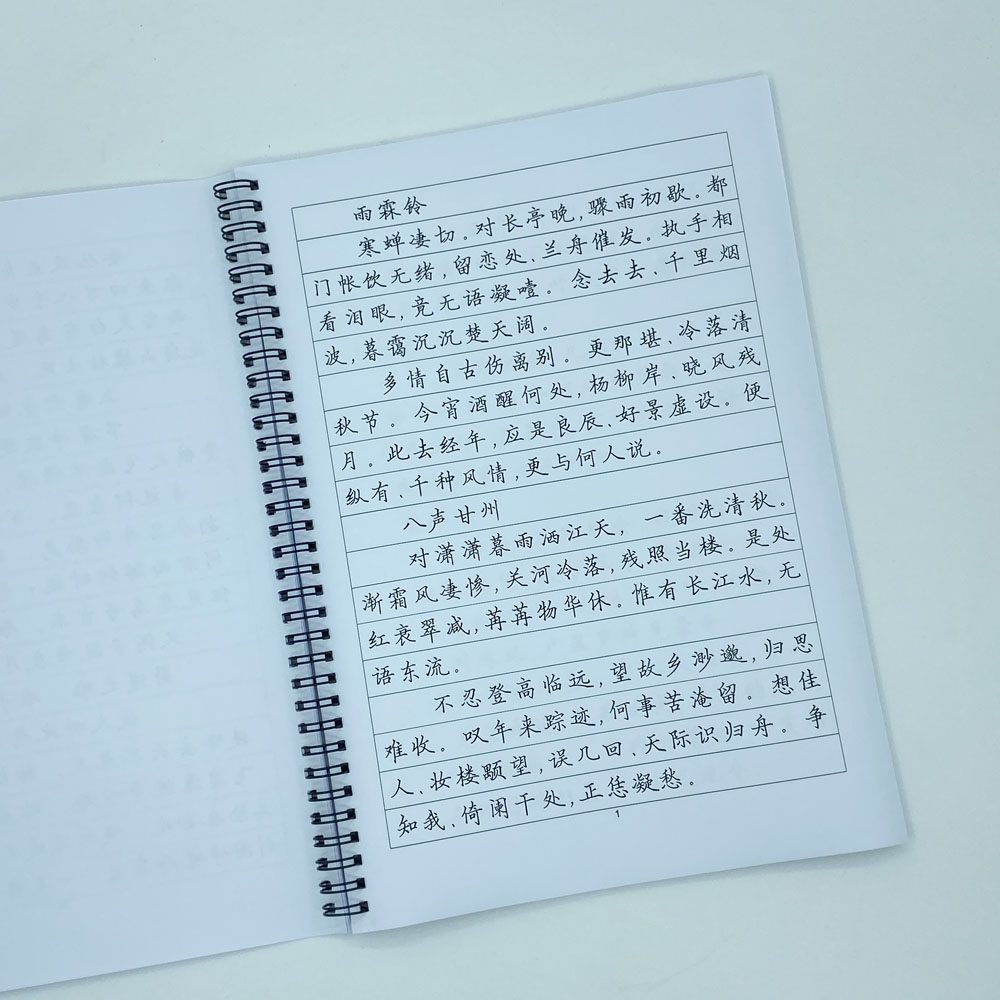 雨霖铃
寒蝉凄切。对长亭晚,骤雨初歇。都
门帐饮无绪,留恋处、兰舟催发。执手相
看泪眼,竟无语凝噎。念去去、千里烟
波,暮霭沉沉楚天阔。
多情自古伤离别。更那堪、冷落清
秋节。今宵酒醒何处,杨柳岸、晓风残
月。此去经年,应是良辰、好景虚设。便
纵有、千种风情,更与何人说。
八声甘州
对潇潇暮雨洒江天,一番洗清秋。
渐霜风凄惨,关河冷落,残照当楼。是处
红衰翠减,苒苒物华休。惟有长江水,无
语东流。
不忍登高临远,望故乡渺邈,归思
难收。叹年来踪迹,何事苦淹留。想佳
人、妆楼颙望,误几回、天际识归舟。争
知我、倚阑干处,正恁凝愁。
1